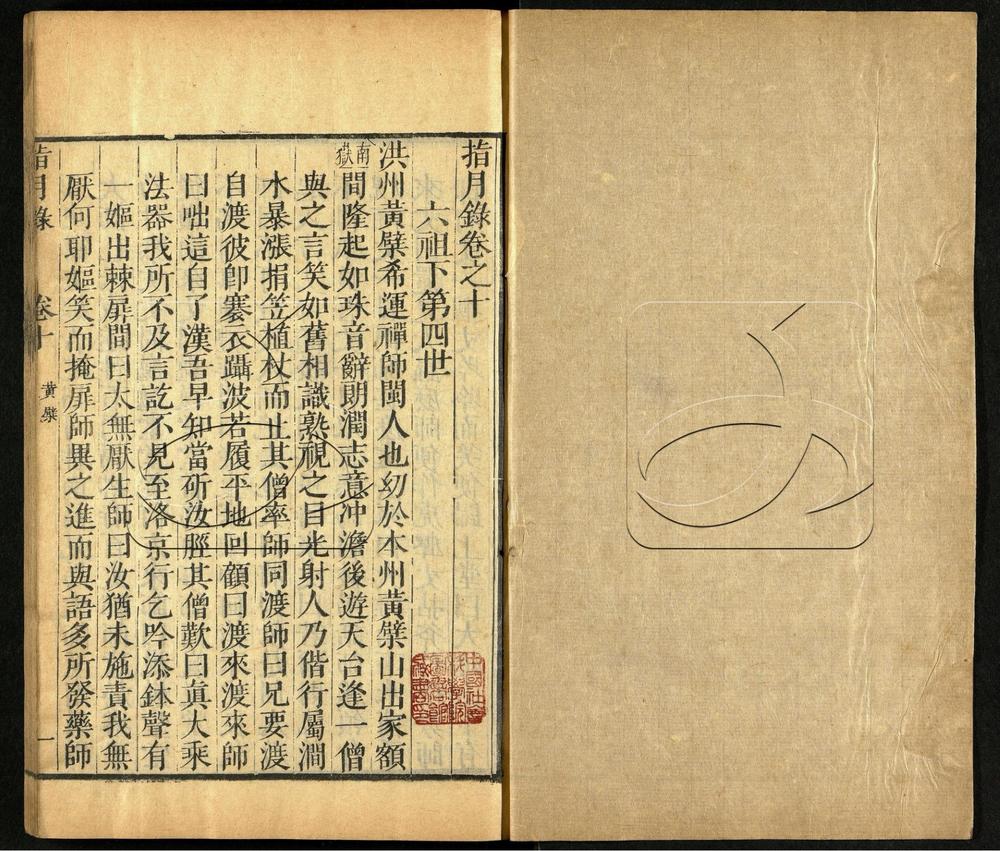 指月錄卷之十
六祖下第四世
洪州黃檗希運禪師閩人也幼於本州黃檗山出家額
間隆起如珠音辭朗潤志意冲澹後遊天台逢一僧
南嶽
與之言笑如舊相識熟視之目光射人乃偕行屬澗
水暴漲捐笠植杖而止其僧率師同渡師曰兄要渡
自渡彼卽褰衣躡波若履平地回顧曰渡來渡來師
曰咄這自了漢吾早知當斫汝脛其僧歎曰眞大乘
法器我所不及言訖不見至洛京行乞吟添鉢聲有
一嫗出棘扉間曰太無厭生師曰汝猶未施責我無
厭何耶嫗笑而掩扉師異之進而與語多所發藥師
指月錄 卷十 黃檗 一